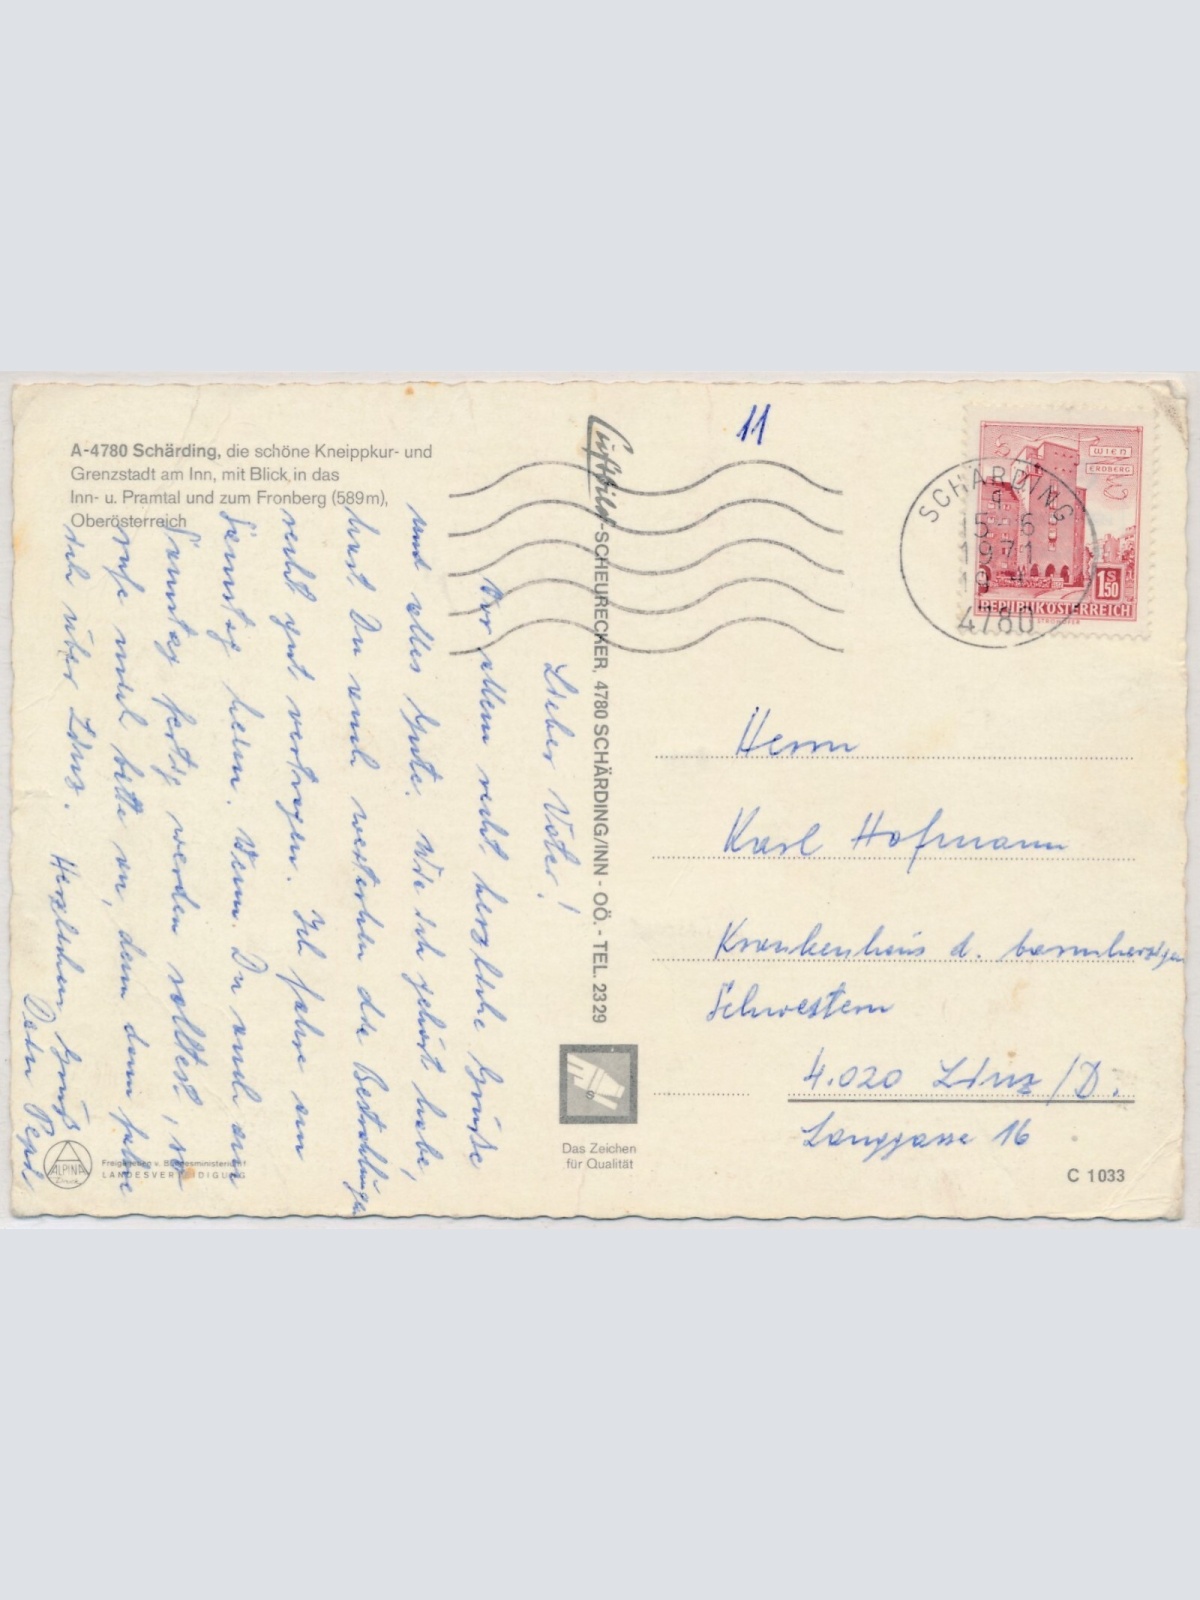 A-4780 Schärding, die schöne Kneippkur- und
Grenzstadt am Inn, mit Blick in das
Inn- u. Pramtal und zum Fronberg (589m),
Oberösterreich
Lieber Vater!
Vor allem recht herzliche Grüße
und alles Gute. Wie ich gehört habe,
hast Du auch weiterhin die Bestrahlungen
recht gut vertragen. Ich fahre am
Samstag heim. Wenn Du auch am
Samstag fertig werden solltest, so
rufe mich bitte an, denn dann fahre
ich über Linz. Herzlichen Gruß
Dein Pepi
Luftbild-SCHEURECKER, 4780 SCHÄRDING/INN - OÖ. - TEL. 2329
11
SCHÄRDING
15.-6
1971
4780
WIEN
ERDBERG
1S50
REPUBLIK ÖSTERREICH
Herrn
Karl Hofmann
Krankenhaus d. barmherzigen
Schwestern
4.020 Linz /D.
Langgasse 16
S
Das Zeichen
für Qualität
ALPINA
Freigegeben v. Bundesministerium f.
LANDESVERTEIDIGUNG
C 1033